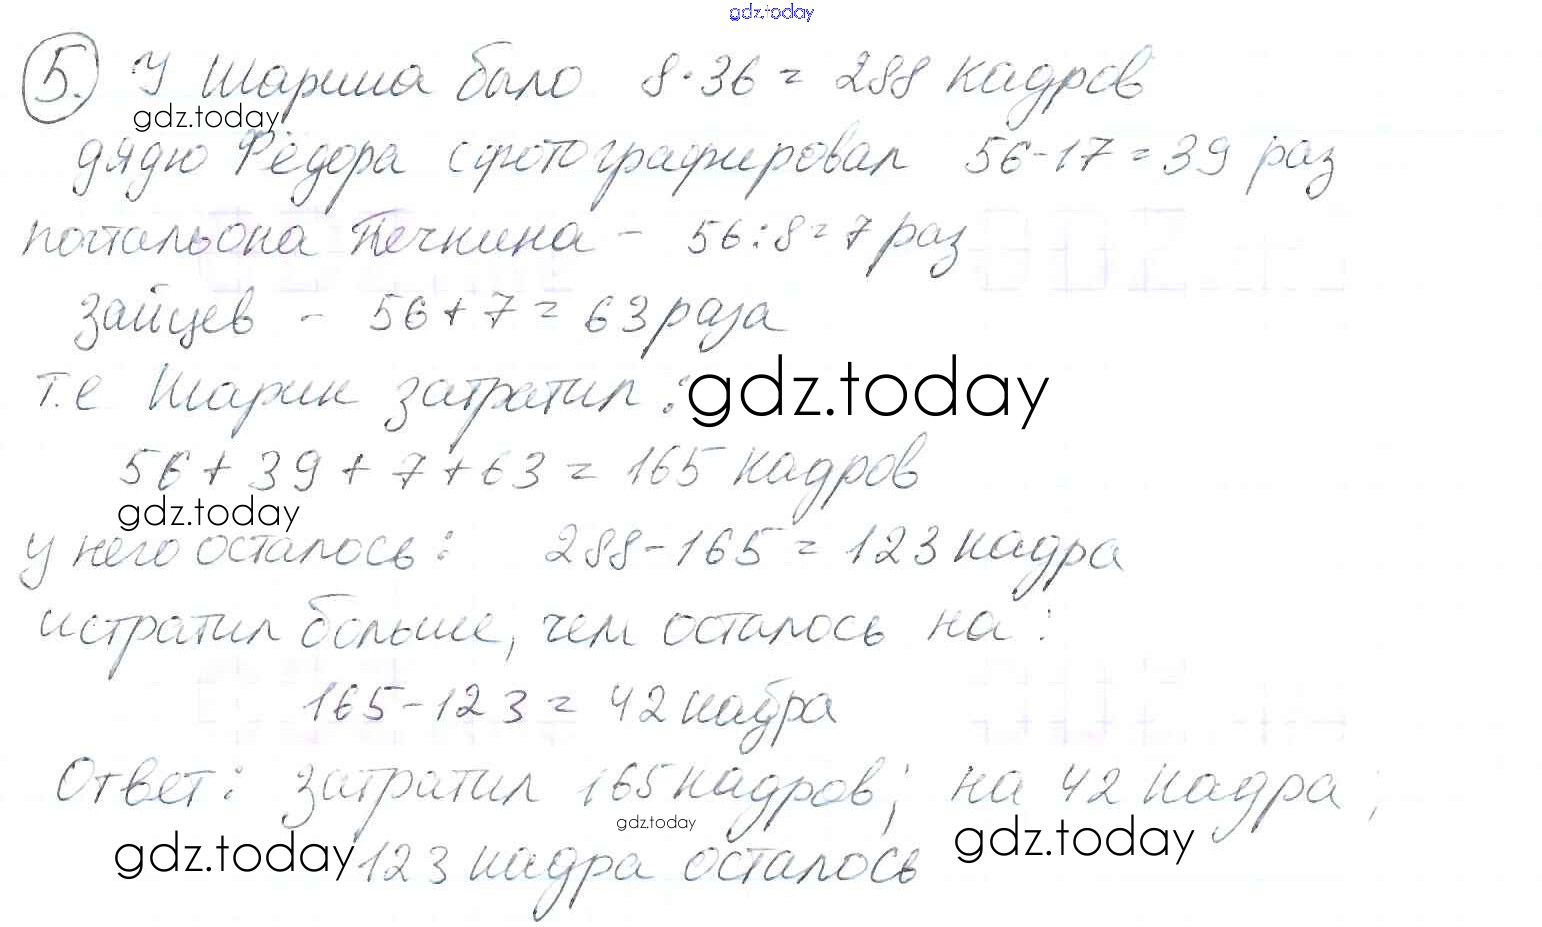 gdz.today
5. У Шарика было 8·36 = 288 кадров
gdz.today
дядю Фёдора сфотографировал 56-17=39 раз
почтальона Печкина - 56:8=7 раз
зайцев - 56+7=63 раза
т.е Шарик затратил: gdz.today
56+39+7+63=165 кадров
gdz.today
у него осталось: 288-165=123 кадра
истратил больше, чем осталось на:
165-123=42 кадра
Ответ: затратил 165 кадров; на 42 кадра;
gdz.today
gdz.today 123 кадра осталось gdz.today